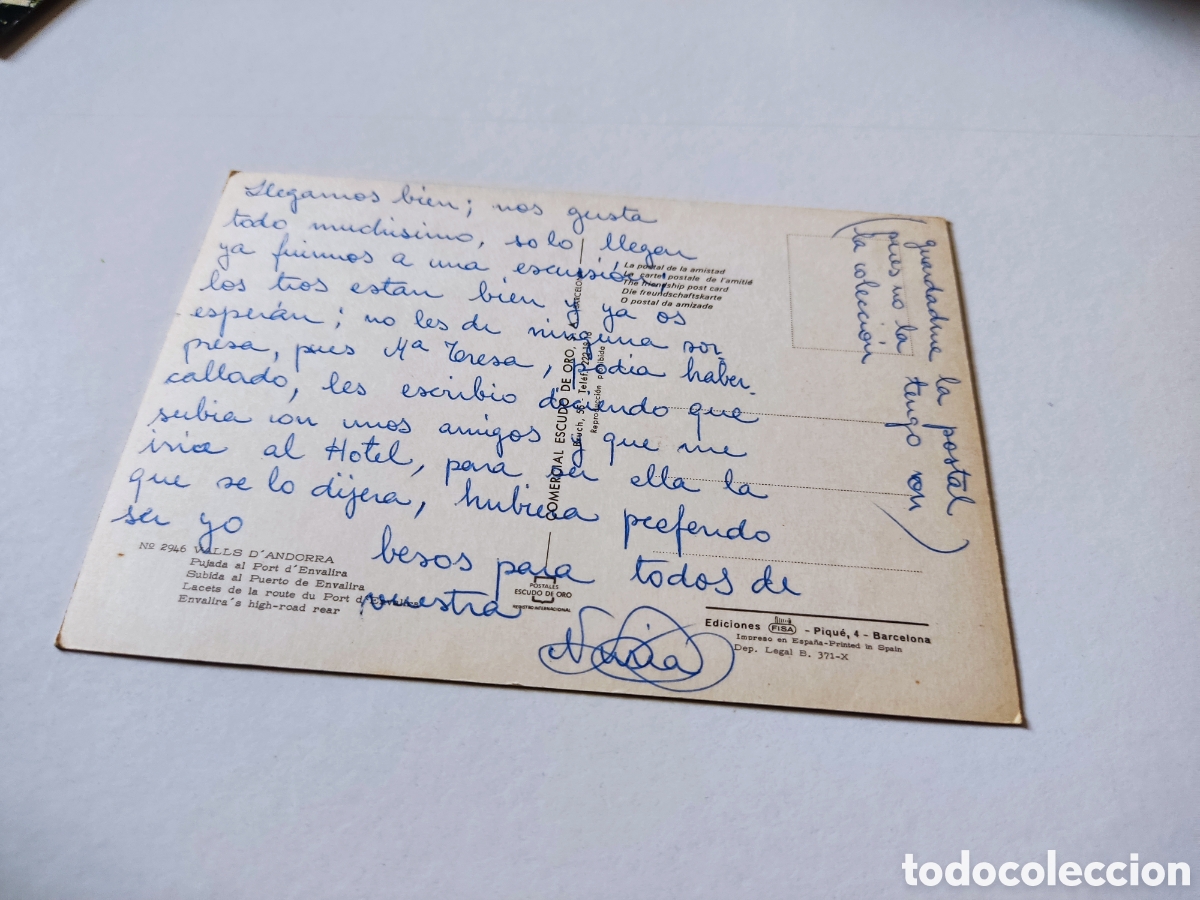 Llegamos bien; nos gusta
todo muchisimo, solo llegan
ya fuimos a una escursión;
los tios estan bien y ya os
esperán; no les di ninguna sor
presa, pues Mª Teresa, podia haber
callado, les escribio diciendo que
subia con unos amigos y que me
iria al Hotel, para ser ella la
que se lo dijera, hubiera preferido
ser yo
besos para todos de
vuestra
Nuria
(guardadme la postal
pues no la tengo en
la colección)
La postal de la amistad
La carte postale de l'amitié
The friendship post card
Die freundschaftskarte
O postal da amizade
COMERCIAL ESCUDO DE ORO, S. A. BARCELONA
Bruch, 56 - Teléf.
Reproducción prohibida
Nº 2946 VALLS D'ANDORRA
Pujada al Port d'Envalira
Subida al Puerto de Envalira
Lacets de la route du Port d'Envalira
Envalira's high-road rear
POSTALES
ESCUDO DE ORO
REGISTRO INTERNACIONAL
Ediciones FISA - Piqué, 4 - Barcelona
Impreso en España-Printed in Spain
Dep. Legal B. 371-X
todocoleccion